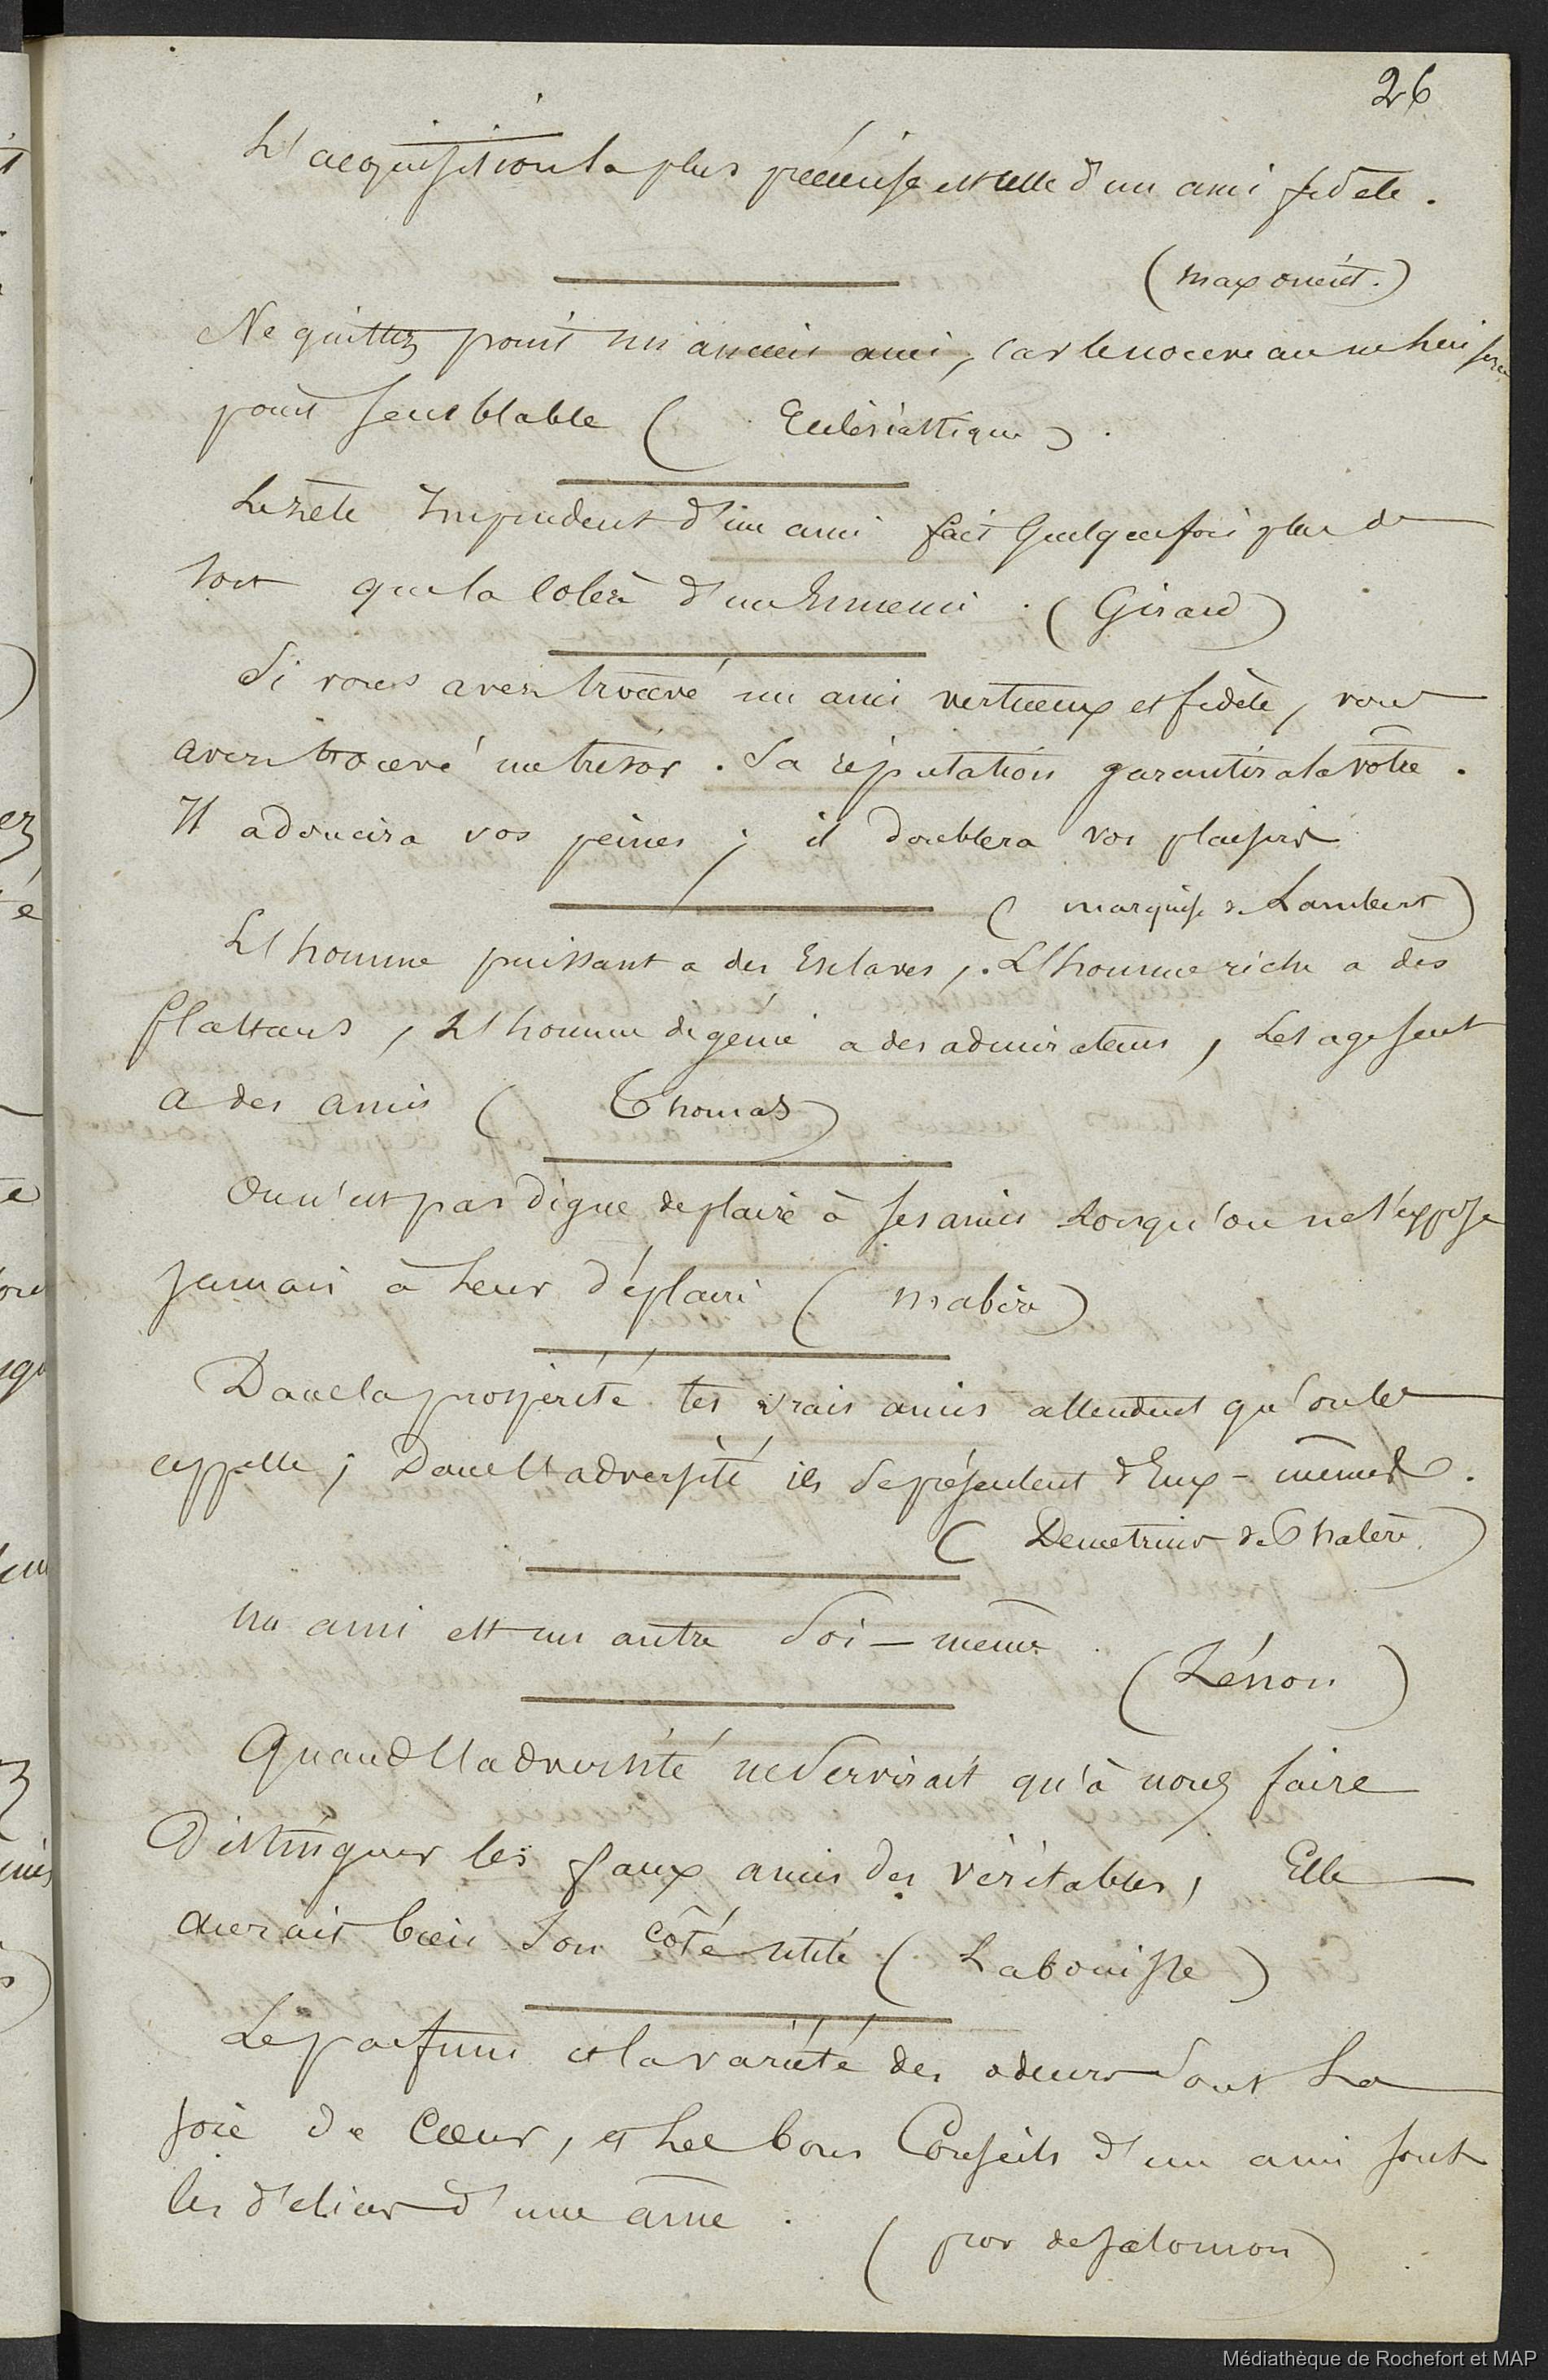 26
L'acquisition la plus précieuse est celle d'un ami fidele.
(max orient.)
Ne quittez point un ancien ami, car le nouveau ne lui sera
point semblable ( Ecclésiastique ).
Le zèle Imprudent d'un ami fait Quelquefois plus de
tort que la Colère d'un Ennemi. (Girard)
Si vous avez trouvé un ami vertueux et fidèle, vous
avez trouvé un trésor. Sa réputation garantira la vôtre.
Il adoucira vos peines; il doublera vos plaisirs
( marquise de Lambert )
L'homme puissant a des Esclaves, L'homme riche a des
flatteurs, L'homme de génie a des admirateurs, Le sage seul
a des amis ( Thomas )
On n'est pas digne de plaire à ses amis Lorsqu'on ne s'expose
jamais à Leur déplaire ( mabire )
Dans la prospérité les vrais amis attendent qu'on les
appelle; Dans l'adversité ils se présentent d'Eux-mêmes.
( Demetrius de Phalère )
un ami est un autre Soi-même.
(Zénon)
Quand l'adversité ne Servirait qu'à nous faire
Distinguer les faux amis des véritables, Elle
aurait bien Son côté utile ( Labouisse )
Le parfum et la variété des odeurs Sont La
joie de Cœur, et Les bons Conseils d'un ami sont
les délices d'une âme.
( prov de Salomon )
Médiathèque de Rochefort et MAP